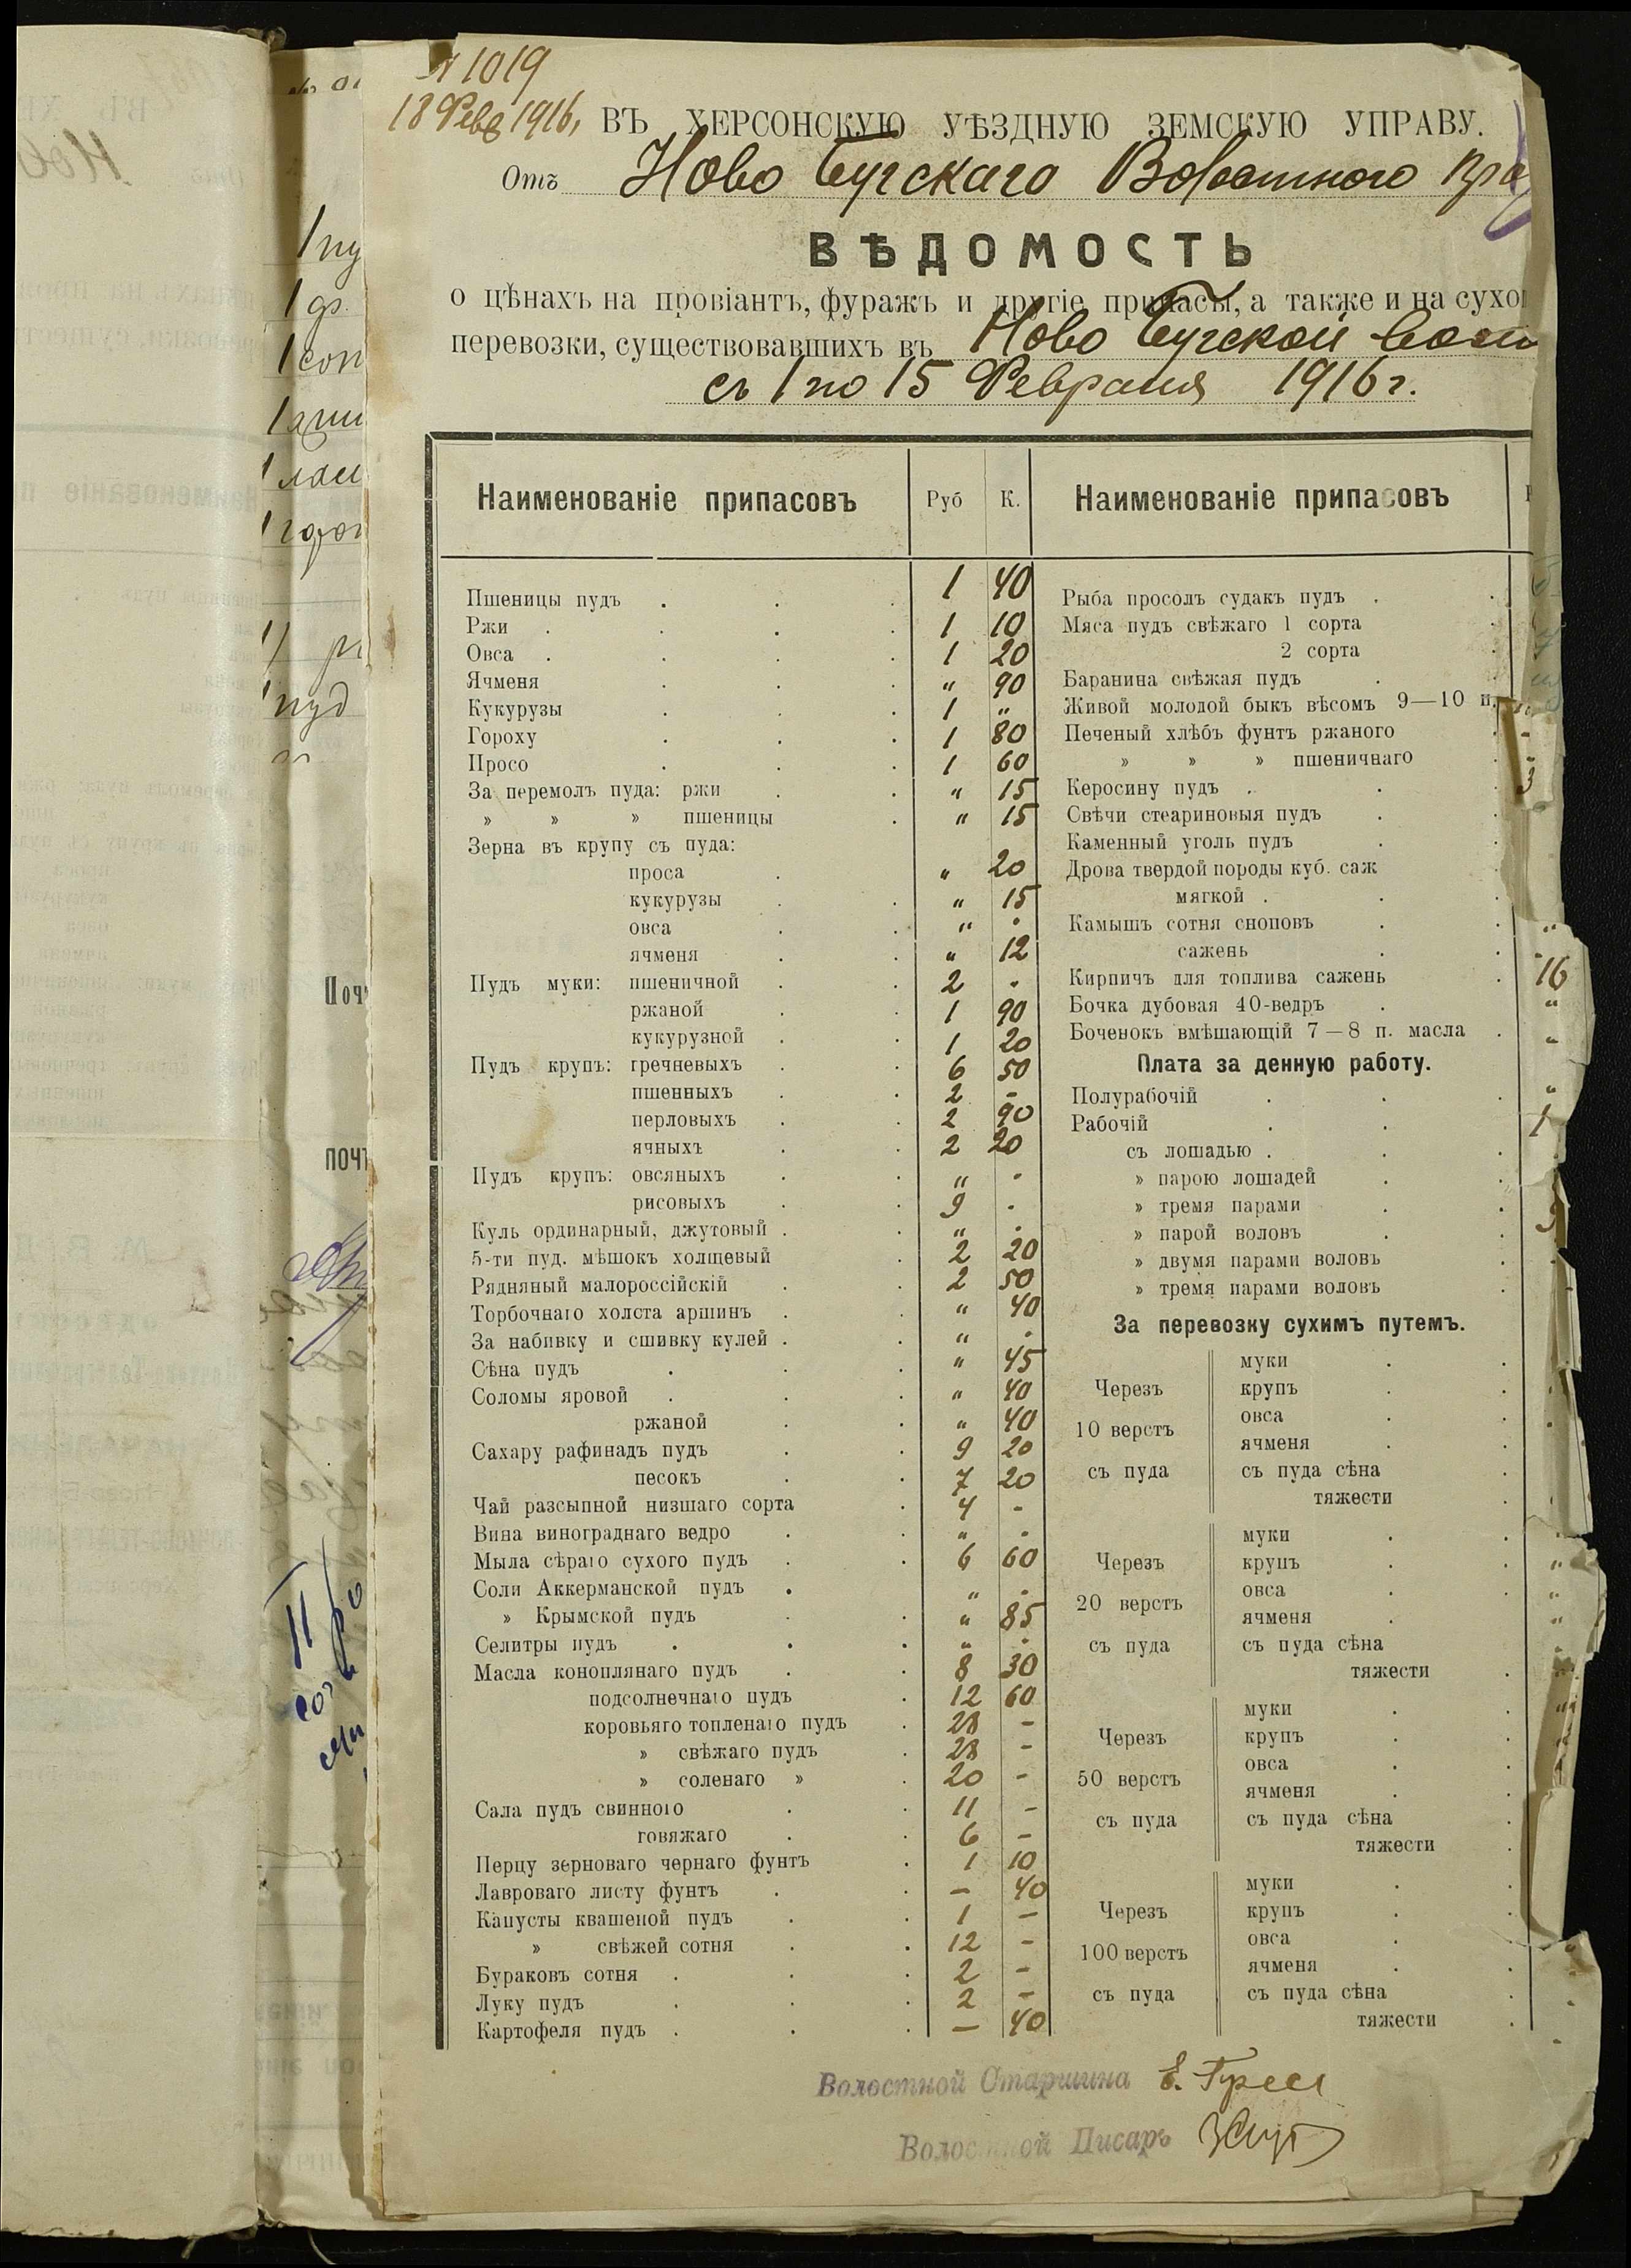 № 1019
18 Февр 1916,
ВЪ ХЕРСОНСКУЮ УѢЗДНУЮ ЗЕМСКУЮ УПРАВУ.
Отъ Ново Бугскаго Волостного
ВѢДОМОСТЬ
о цѣнахъ на провіантъ, фуражъ и другіе припасы, а также и на
перевозки, существовавшихъ въ Ново Бугской
съ 1 по 15 Февраля 1916 г.
Наименованіе припасовъ Руб К.
Пшеницы пудъ 1 40
Ржи 1 10
Овса 1 20
Ячменя " 90
Кукурузы 1 "
Гороху 1 80
Просо 1 60
За перемолъ пуда: ржи " 15
» » » пшеницы " 15
Зерна въ крупу съ пуда:
проса " 20
кукурузы " 15
овса " .
ячменя " 12
Пудъ муки: пшеничной 2 .
ржаной 1 90
кукурузной 1 20
Пудъ крупъ: гречневыхъ 6 50
пшенныхъ 2 -
перловыхъ 2 90
ячныхъ 2 20
Пудъ крупъ: овсяныхъ " .
рисовыхъ 9 .
Куль ординарный, джутовый " .
5-ти пуд. мѣшокъ холщевый 2 20
Рядняный малороссійскій 2 50
Торбочнаго холста аршинъ " 40
За набивку и сшивку кулей " .
Сѣна пудъ " 45
Соломы яровой " 40
ржаной " 40
Сахару рафинадъ пудъ 9 20
песокъ 7 20
Чай разсыпной низшаго сорта 4 -
Вина винограднаго ведро " .
Мыла сѣраго сухого пудъ 6 60
Соли Аккерманской пудъ " .
» Крымской пудъ " 85
Селитры пудъ " .
Масла коноплянаго пудъ 8 30
подсолнечнаго пудъ 12 60
коровьяго топленаго пудъ 28 -
» свѣжаго пудъ 28 -
» соленаго » 20 -
Сала пудъ свинного 11 -
говяжаго 6 -
Перцу зерноваго чернаго фунтъ 1 10
Лавроваго листу фунтъ - 40
Капусты квашеной пудъ 1 -
» свѣжей сотня 12 -
Бураковъ сотня 2 -
Луку пудъ 2 -
Картофеля пудъ - 40
Наименованіе припасовъ
Рыба просолъ судакъ пудъ
Мяса пудъ свѣжаго 1 сорта
2 сорта
Баранина свѣжая пудъ
Живой молодой быкъ вѣсомъ 9—10 п.
Печеный хлѣбъ фунтъ ржаного
» » » пшеничнаго
Керосину пудъ
Свѣчи стеариновыя пудъ
Каменный уголь пудъ
Дрова твердой породы куб. саж
мягкой
Камышъ сотня сноповъ "
сажень
Кирпичъ для топлива сажень 16
Бочка дубовая 40-ведръ "
Боченокъ вмѣшающій 7—8 п. масла "
Плата за денную работу.
Полурабочій "
Рабочій 1
съ лошадью
» парою лошадей
» тремя парами
» парой воловъ
» двумя парами воловъ
» тремя парами воловъ
За перевозку сухимъ путемъ.
Черезъ 10 верстъ съ пуда
муки
крупъ
овса
ячменя
съ пуда сѣна
тяжести
Черезъ 20 верстъ съ пуда
муки
крупъ
овса
ячменя
съ пуда сѣна
тяжести
Черезъ 50 верстъ съ пуда
муки
крупъ
овса
ячменя
съ пуда сѣна
тяжести
Черезъ 100 верстъ съ пуда
муки
крупъ
овса
ячменя
съ пуда сѣна
тяжести
Волостной Старшина
Волостной Писарь